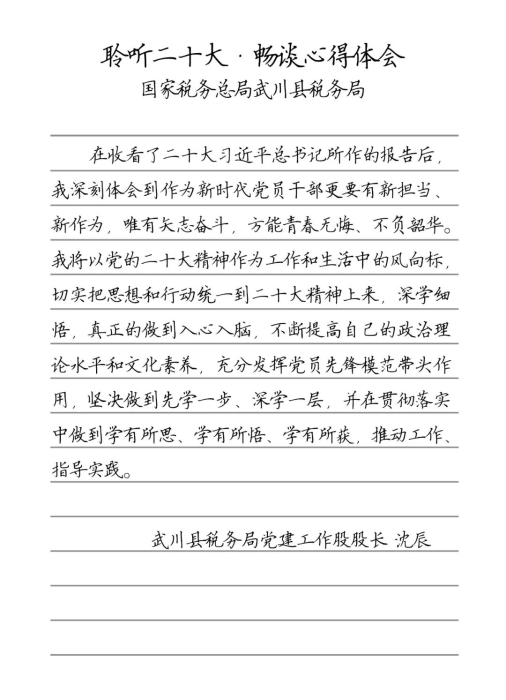 聆听二十大·畅谈心得体会
国家税务总局武川县税务局
在收看了二十大习近平总书记所作的报告后，
我深刻体会到作为新时代党员干部更要有新担当、
新作为，唯有矢志奋斗，方能青春无悔、不负韶华。
我将以党的二十大精神作为工作和生活中的风向标，
切实把思想和行动统一到二十大精神上来，深学细
悟，真正的做到入心入脑，不断提高自己的政治理
论水平和文化素养，充分发挥党员先锋模范带头作
用，坚决做到先学一步、深学一层，并在贯彻落实
中做到学有所思、学有所悟、学有所获，推动工作、
指导实践。
武川县税务局党建工作股股长 沈辰